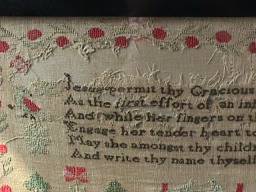 Jesus permit thy Gracious
As the first effort of an in
And while Her fingers on th
Engage her tender heart to
May she amongst thy childr
And write thy name thyself